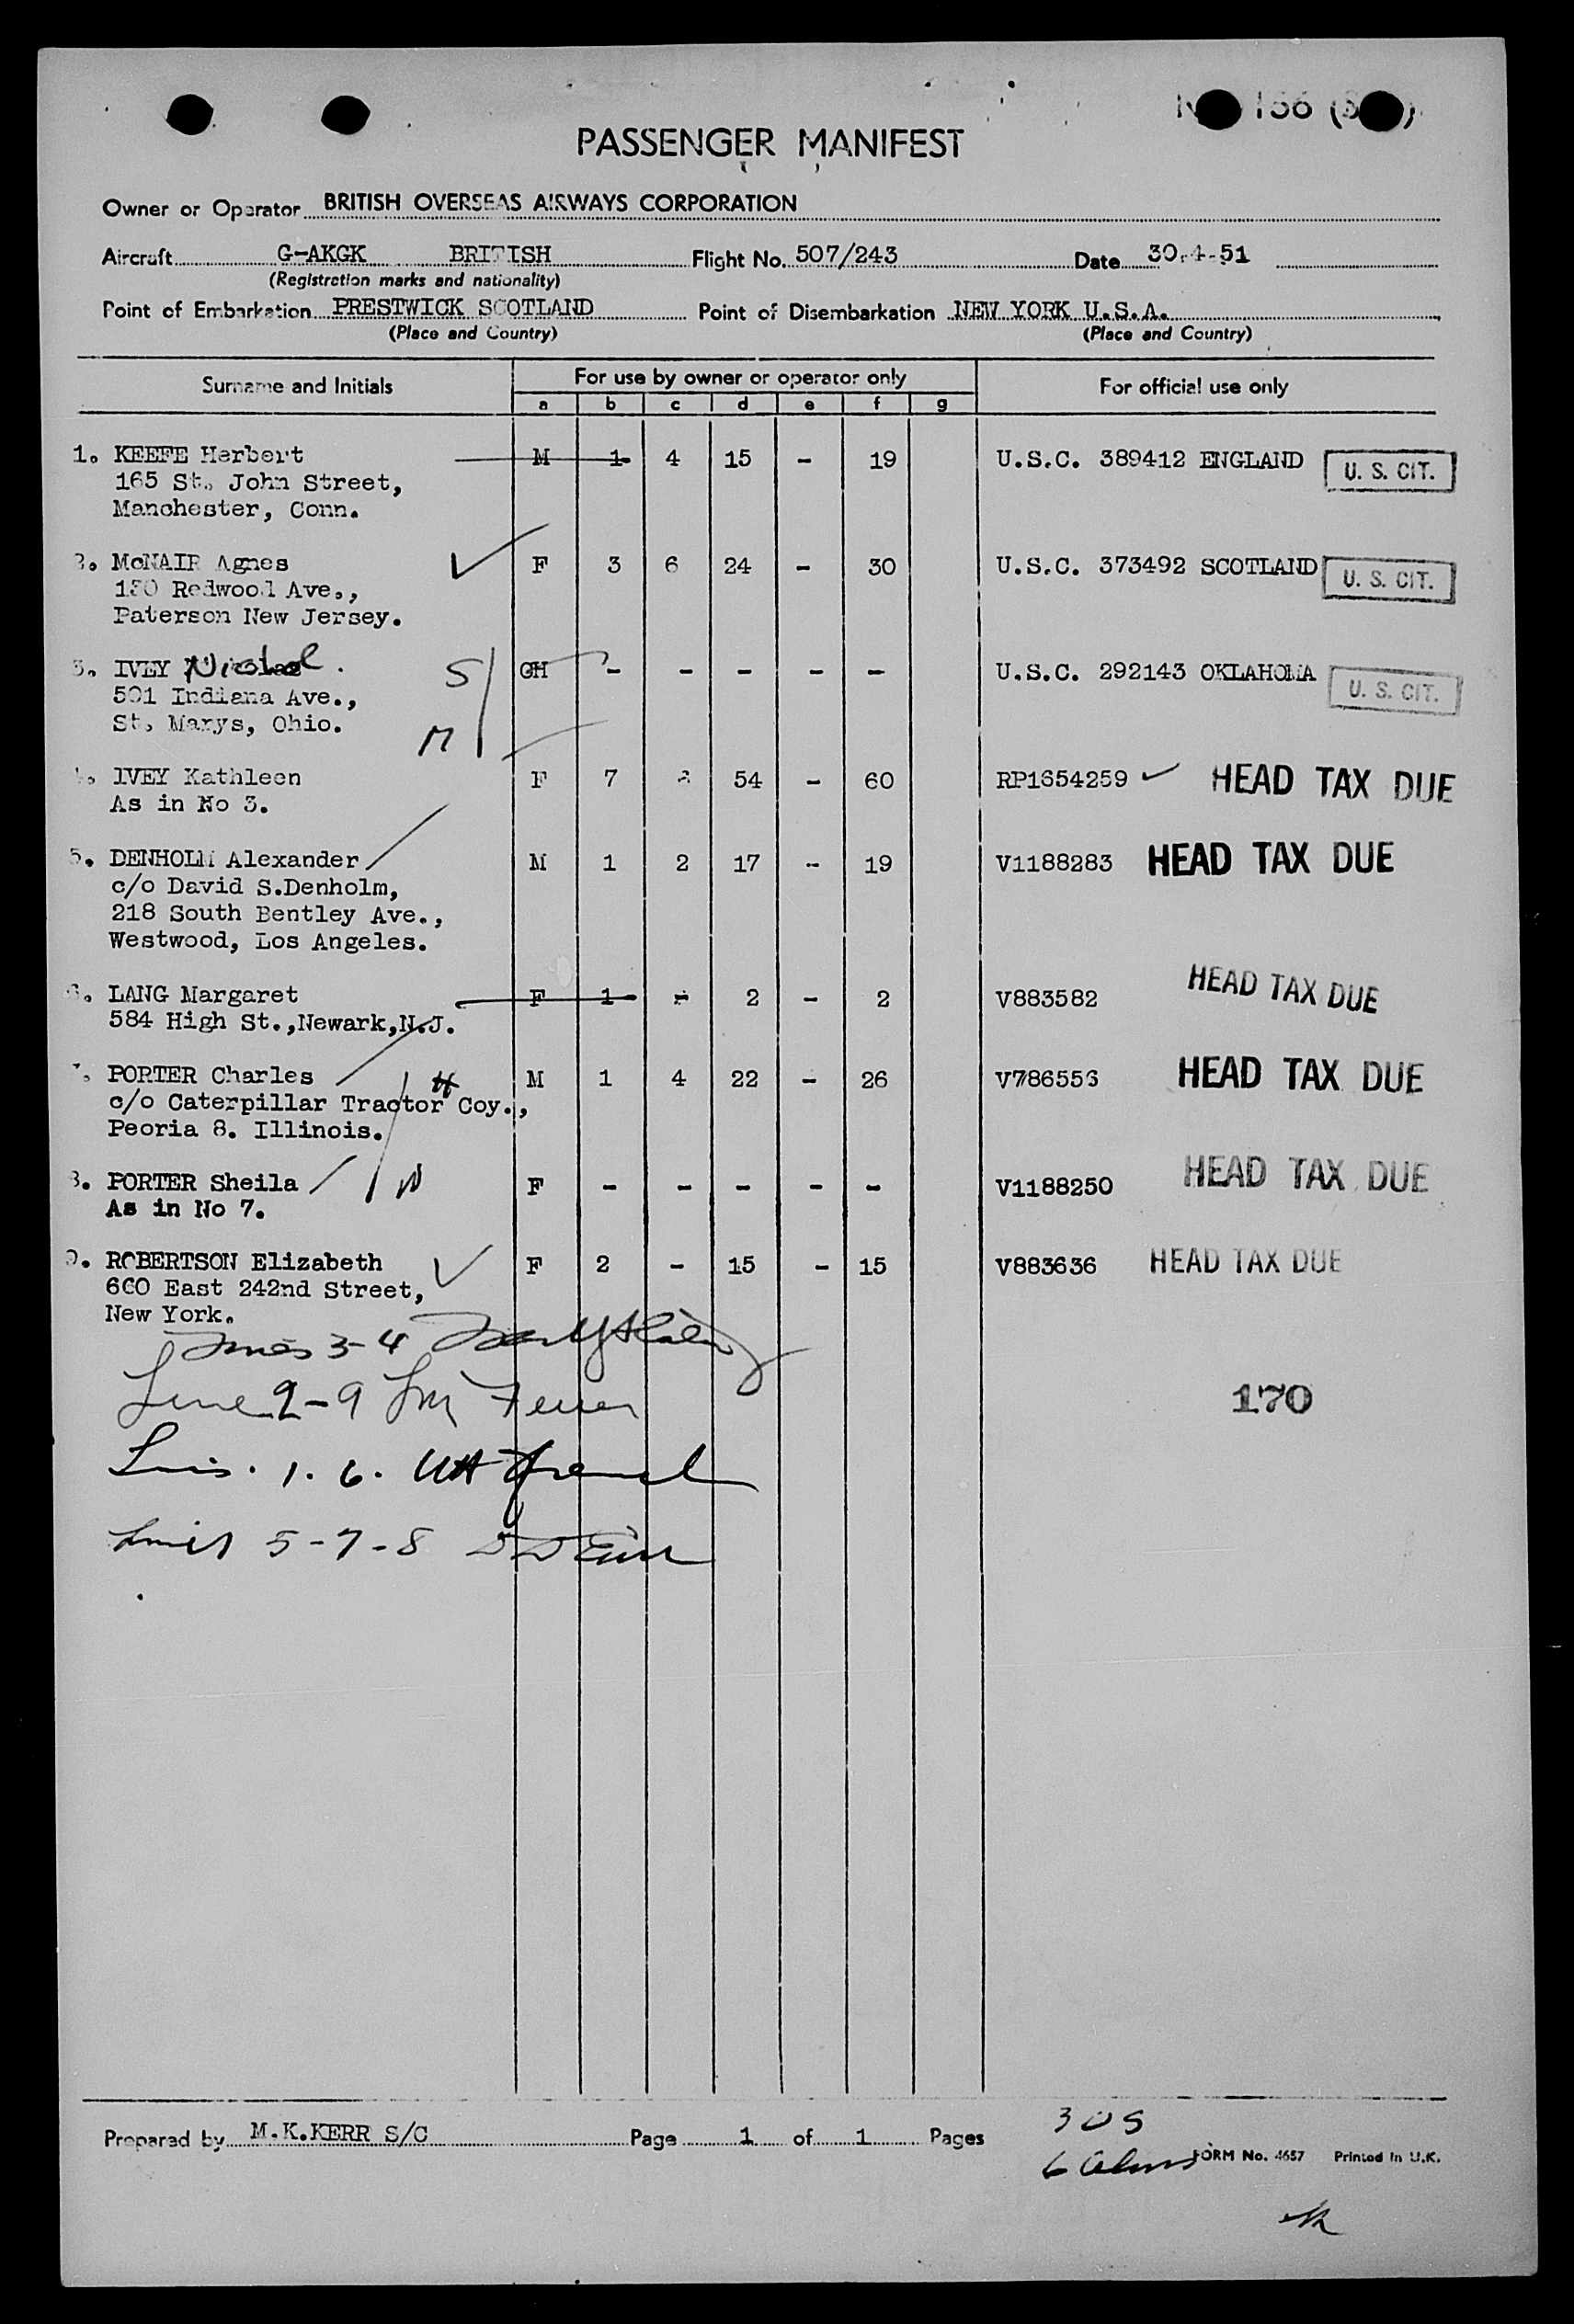 PASSENGER MANIFEST
Owner or Operator BRITISH OVERSEAS AIRWAYS CORPORATION
Aircraft G-AKGK BRITISH Flight No. 507/243 Date 30.4.51
(Registration marks and nationality)
Point of Embarkation PRESTWICK SCOTLAND Point of Disembarkation NEW YORK U.S.A.
(Place and Country) (Place and Country)
Surname and Initials For use by owner or operator only For official use only
a b c d e f g
1. KEEFE Herbert M 1 4 15 - 19 U.S.C. 389412 ENGLAND U. S. CIT.
165 St. John Street,
Manchester, Conn.
2. McNAIR Agnes F 3 6 24 - 30 U.S.C. 373492 SCOTLAND U. S. CIT.
Redwood Ave.,
Paterson New Jersey.
3. IVEY S CH - - - - - U.S.C. 292143 OKLAHOMA U. S. CIT.
501 Indiana Ave.,
St. Marys, Ohio.
M
4. IVEY Kathleen F 7 54 - 60 RP1654259 HEAD TAX DUE
As in No 3.
5. DENHOLM Alexander M 1 2 17 - 19 V1188283 HEAD TAX DUE
c/o David S.Denholm,
218 South Bentley Ave.,
Westwood, Los Angeles.
6. LANG Margaret F 1 - 2 - 2 V883582 HEAD TAX DUE
584 High St.,Newark,N.J.
7. PORTER Charles H M 1 4 22 - 26 V786556 HEAD TAX DUE
c/o Caterpillar Tractor Coy.,
Peoria 8. Illinois.
8. PORTER Sheila W F - - - - - V1188250 HEAD TAX DUE
As in No 7.
9. ROBERTSON Elizabeth F 2 - 15 - 15 V883636 HEAD TAX DUE
660 East 242nd Street,
New York.
Lines 3-4
Line 2-9
170
Lines. 1. 6.
Lines 5-7-8
Prepared by M.K.KERR S/C Page 1 of 1 Pages
3 US
6 Aliens FORM No. 4657 Printed in U.K.